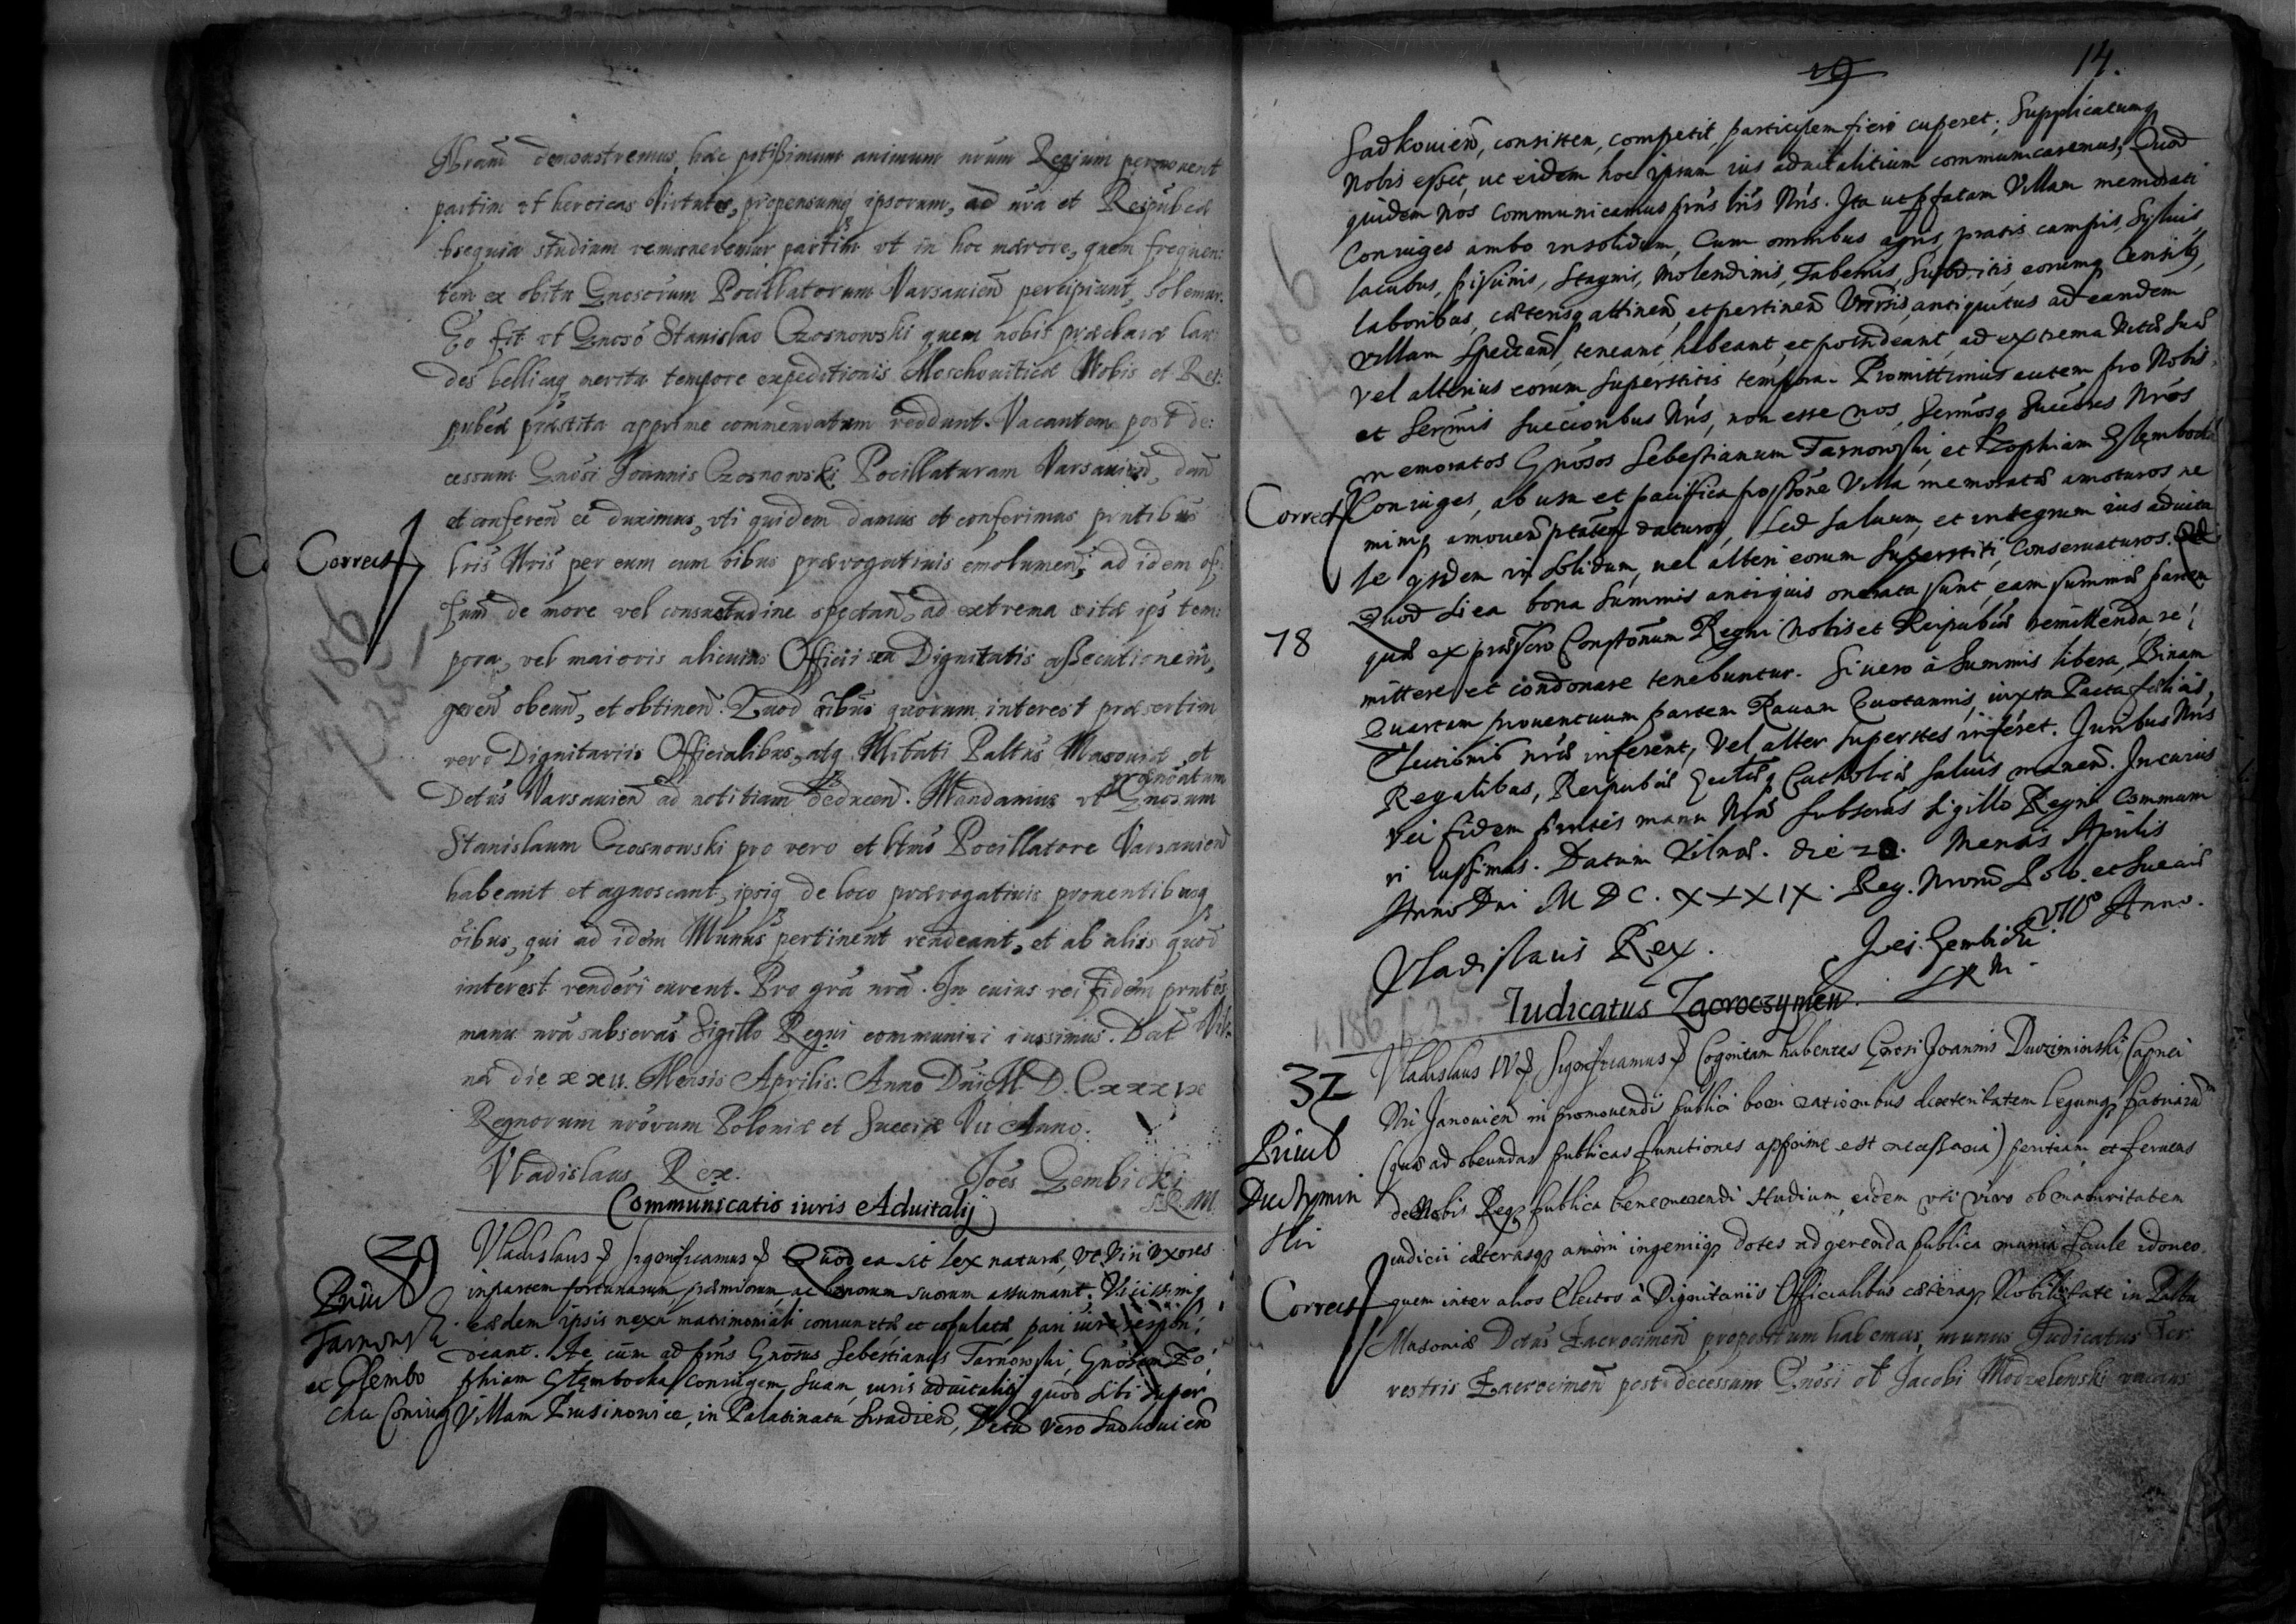 demonstremus, hac potissimum animum nrum Regium permouent
partim vt heroicas Virtutes, propensumq ipsorum, ad nra et Reipubcæ
obsequia studium remuneremur partim vt in hoc mærore, quem frequen:
tem ex obitu Gnosorum Pocillatorum Varsauien percipiunt, solemur.
Eo fit vt Gnoso Stanislao Czosnowski quem nobis præclaræ lau:
des bellicaq merita tempore expeditionis Moschouiticæ Nobis et Rei:
pubcæ præstita apprime commendatum reddunt. Vacantem post de:
cessum Gnosi Joannis Czosnowski Pocillaturam Varsauien, dan
et conferen ei duximus, vti quidem damus et conferimus prntibus
Correct
lris Nris per eum cum oibus prærogatiuis emolumen; ad idem of:
fium de more vel consuetudine spectan, ad extrema vitæ ips tem:
186
pora, vel maioris alicuius Officii seu Dignitatis assecutionem,
geren obeun, et obtinen. Quod oibus quorum interest præsertim
vero Dignitariis Officialibus, atq Nbitati Paltus Masouiæ et
Dctus Varsauien ad notitiam deducen. Mandamus vt prænoatum Gnosum
Stanislaum Czosnowski pro vero et ltmo Pocillatore Varsauien
habeant et agnoscant, ipsiq de loco prærogatiuis prouentibusq
oibus, qui ad idem Munus pertinent rendeant, et ab aliis quod
interest renderi curent. Pro gra nra. In cuius rei fidem prntes
manu nra subscras Sigillo Regni communiri iussimus. Dat Vil:
næ die xxii. Mensis Aprilis. Anno Dni M. D. C. xxxix
Regnorum nrorum Poloniæ et Sueciæ Vii Anno.
Vladislaus Rex. Joes Gembicki
S.R.M.
Communicatio iuris Aduitalij
29
Vladislaus Significamus Quod ea sit lex naturæ, vt Viri Vxores
in partem fortunarum, præmiorum, ac bonorum suorum assumant. Vicissimq
Tarnowski
eædem ipsis nexu matrimoniali coniunctæ, et copulatæ, pari iure respon:
deant. Ac cum ad prns Gnosus Sebestianus Tarnowski, Gnosam Zo:
et Glembo
phiam Głembocka coniugem suam, iuris aduitalij quod sibi super
cka Coniug
Villam Prusinowice, in Palatinatu Siradien, Dctu vero Sadkouien
19 14.
Sadkouien, consisten, competit, participem fieri cuperet; Supplicatumq
Nobis esset, ut eidem hoc ipsum ius aduitalitium communicaremus, Quod
quidem Nos communicamus prns lris Nris. Ita ut pfatam Villam memorati
Coniuges ambo insolidum, Cum omnibus agris, pratis campis, Syluis,
lacubus, piscinis, Stagnis, Molendinis, Tabernis, Subditis, eorumq Censibq,
laboribus, cæterisq attinen, et pertinen Vniversis, antiquitus ad eandem
villam spectan, teneant, habeant, et possideant, ad extrema vitæ suæ
vel alterius eorum superstitis tempora. Promittimus autem pro Nobis
et Sermis Successoribus Nris, non esse nos, Sermosq Succres Nros
memoratos Gnosos Sebestianum Tarnowski, et Zophiam Głembocka
Correct
Coniuges, ab usu et pacifica possone Villæ memoratæ amoturos ne
miniq amouen ptatem daturos, Sed saluum, et integrum ius aduita
le ipsdem in solidum, uel alteri eorum Superstiti, Conseruaturos.
Quod si ea bona summis antiquis onerata sunt, eam summæ partem
78
quæ ex præscro Constonum Regni Nobis et Reipubcæ remittenda, re:
mittere et condonare tenebuntur. Si uero à Summis libera, Binam
Quartam prouentuum partem Rauam Quotannis, iuxta Pacta fæliciæ
Electionis nræ inferent, Vel alter superstes inferet. Juribus Nris
Regalibus, Reipubcæ Eccliæq Catholicæ saluis manen. In cuius
rei fidem prntes manu Nra Subscras Sigillo Regni Commun
ri iussimus. Datum Vilnæ. die 20. Mensis Aprilis
Anno Dni M D C. XXXIX. Reg. Nrorum Polo. et Sueciæ
VII Anno.
Vladislaus Rex. Joes Gembicki
S R M.
186 25.
Judicatus Zacroczymen
32
Vladislaus IV Significamus Cognitam habentes Gnosi Joannis Duczyminski Capnei
Nri Janouien in promouendis publici boni rationibus dexteritatem legumq patriarum
(quæ ad obeundas publicas functiones apprime est necessaria) peritiam, et feruens
Duczymin
de Nobis Req publica benemerendi studium, eidem vti viro ob maturitatem
ski
iudicii cæterasq animi ingeniiq dotes ad gerenda publica munia sane idoneo
Correct
quem inter alios Electos à Dignitariis Officialibus cæteraq Nobilitate in Paltu
Masouiæ Dctus Zacrocimen propositum habemus, munus Judicatus Ter:
restris Zacrocimen post decessum Gnosi ol Jacobi Modzelewski vacans